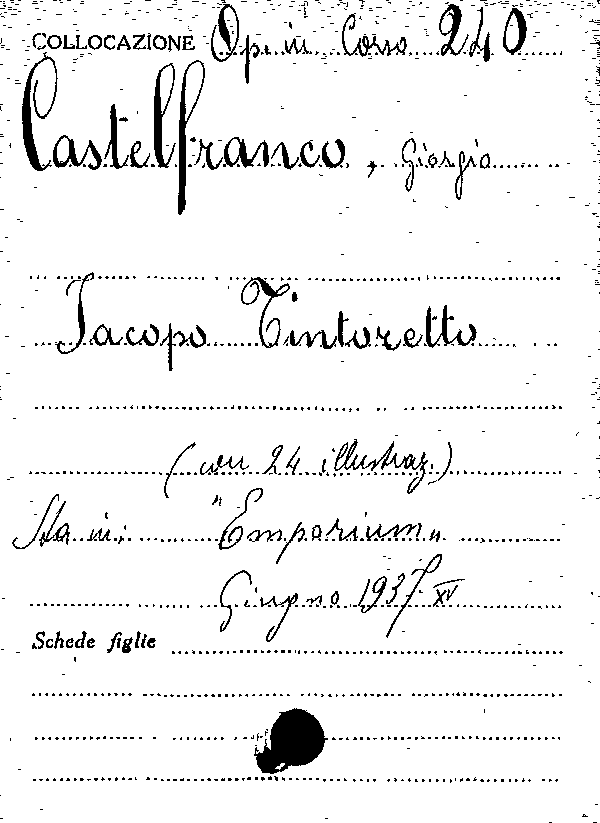 COLLOCAZIONE Op. in Corso 240
Castelfranco, Giorgio
Jacopo Tintoretto
(con 24 illustraz.)
Sta in: "Emporium"
Giugno 1937 XV
Schede figlie